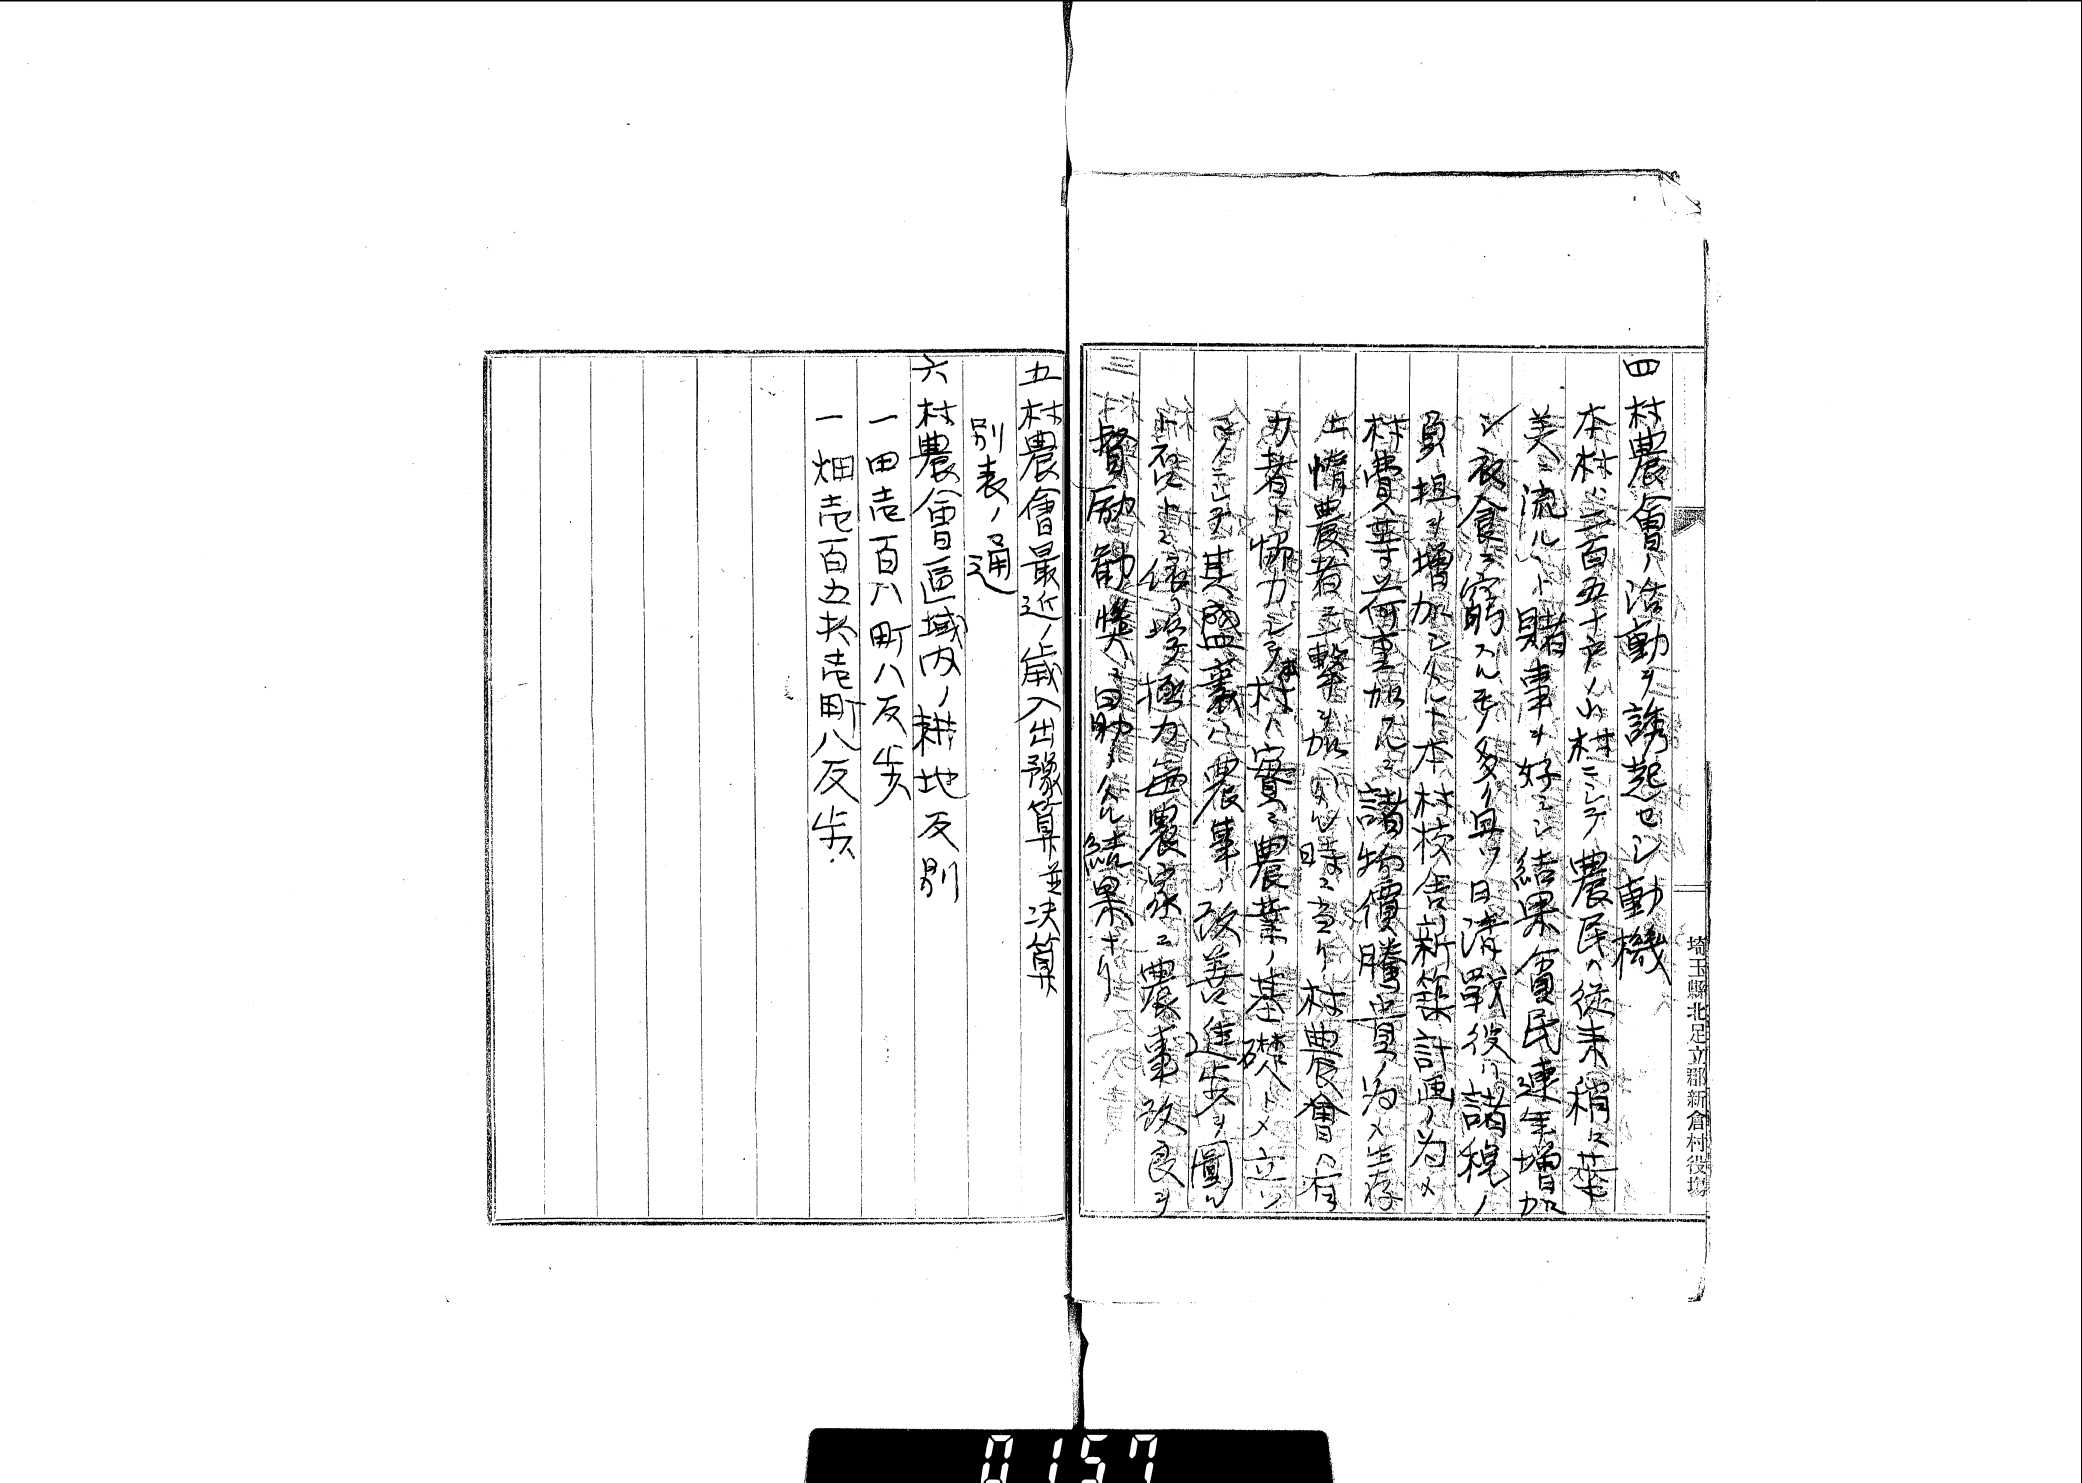 埼玉縣北足立郡新倉村役場
四 村農會ノ活動ヲ誘起セシ動機
本村ハ三百五十戸ノ小村ニシテ農民ハ従来稍々華
美ニ流レ賭事ヲ好ミシ結果貧民連年増加
シ衣食ニ窮スルモノ多ク且ツ日清戰役ハ諸税ノ
負担ヲ増加シタルト本村校舎新築計画ノ為メ
村費荷重加フルニ諸物價騰貴ノ為メ生存
上惰農者ニ一撃ヲ加ヘタル時ニ當リ村農會ハ有
力者ト協力シテ本村ハ實ニ農業ノ基礎トメ立ツ
其盛衰ハ農事ノ改善進歩ヲ圖ル
極力毎農家ニ農事改良ヲ
督励勧奨ニ勗メタル結果ナリ
五 村農會最近ノ歳入出豫算並決算
別表ノ通
六 村農會區域内ノ耕地反別
一 田壱百八町八反歩
一 畑壱百五拾壱町八反歩
0157